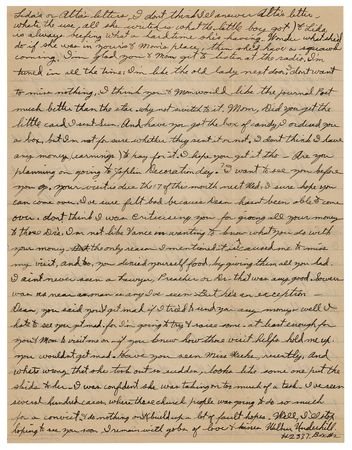 Lida's or Alta's letters, I don't think I'll answer Alta's letter,
whats the use, all she writes is what the little boys got & Lida
is always beefing what a hard time she's having. Wonder what she'd
do if she was in yours & Mom's place, then she'd have a squawk
coming. I'm glad you & Mom get to listen at the radio, I'm
tuned in all the time. I'm like the old lady next door, don't want
to miss nothing, I think you & Mom would like the Journal Post
much better than the star why not switch to it. Mom, Did you get the
little card I sent you. And have you got the box of candy, I ordered you
a box, but I'm not for sure whether they sent it or not, I don't think I have
any money (earnings) to pay for it. I hope you get it tho - Are you
planning on going to Joplin Decoration day. I want to see you before
you go. Your visit is due the 17 of this month next Wed, I sure hope you
can come over. I've sure felt bad because Dean hasn't been able to come
over. don't think I was criticising you for giving all your money
to those Drs. I'm not like Vance in wanting to know what you do with
your money. But the only reason I mentioned it, it caused me to miss
my visit, and too, you denied yourself food, by giving them all you had.
I aint never seen a Lawyer, Preacher or Dr. that was any good. Sowers
was as near a man as any I've seen. But he's an exception -
Dean, you said you'd get mad if I tried to send you any money. well I
hate to see you get mad, for I'm going to try & raise some - at least enough for
you & Mom to visit me on - if you knew how those visits helps hold me up
you wouldn't get mad. Have you seen Miss recently, and
whats wrong that she took out so sudden, looks like some one put the
skids to her. I was confident she was taking on too much of a task. I've seen
several hundred cases, where these church people was going to do so much
for a convict & do nothing only build up a lot of fault hopes. Well, I'll stop
hoping to see you soon I remain with gobs of love & kisses Wilbur Underhill
#2337, Box #2